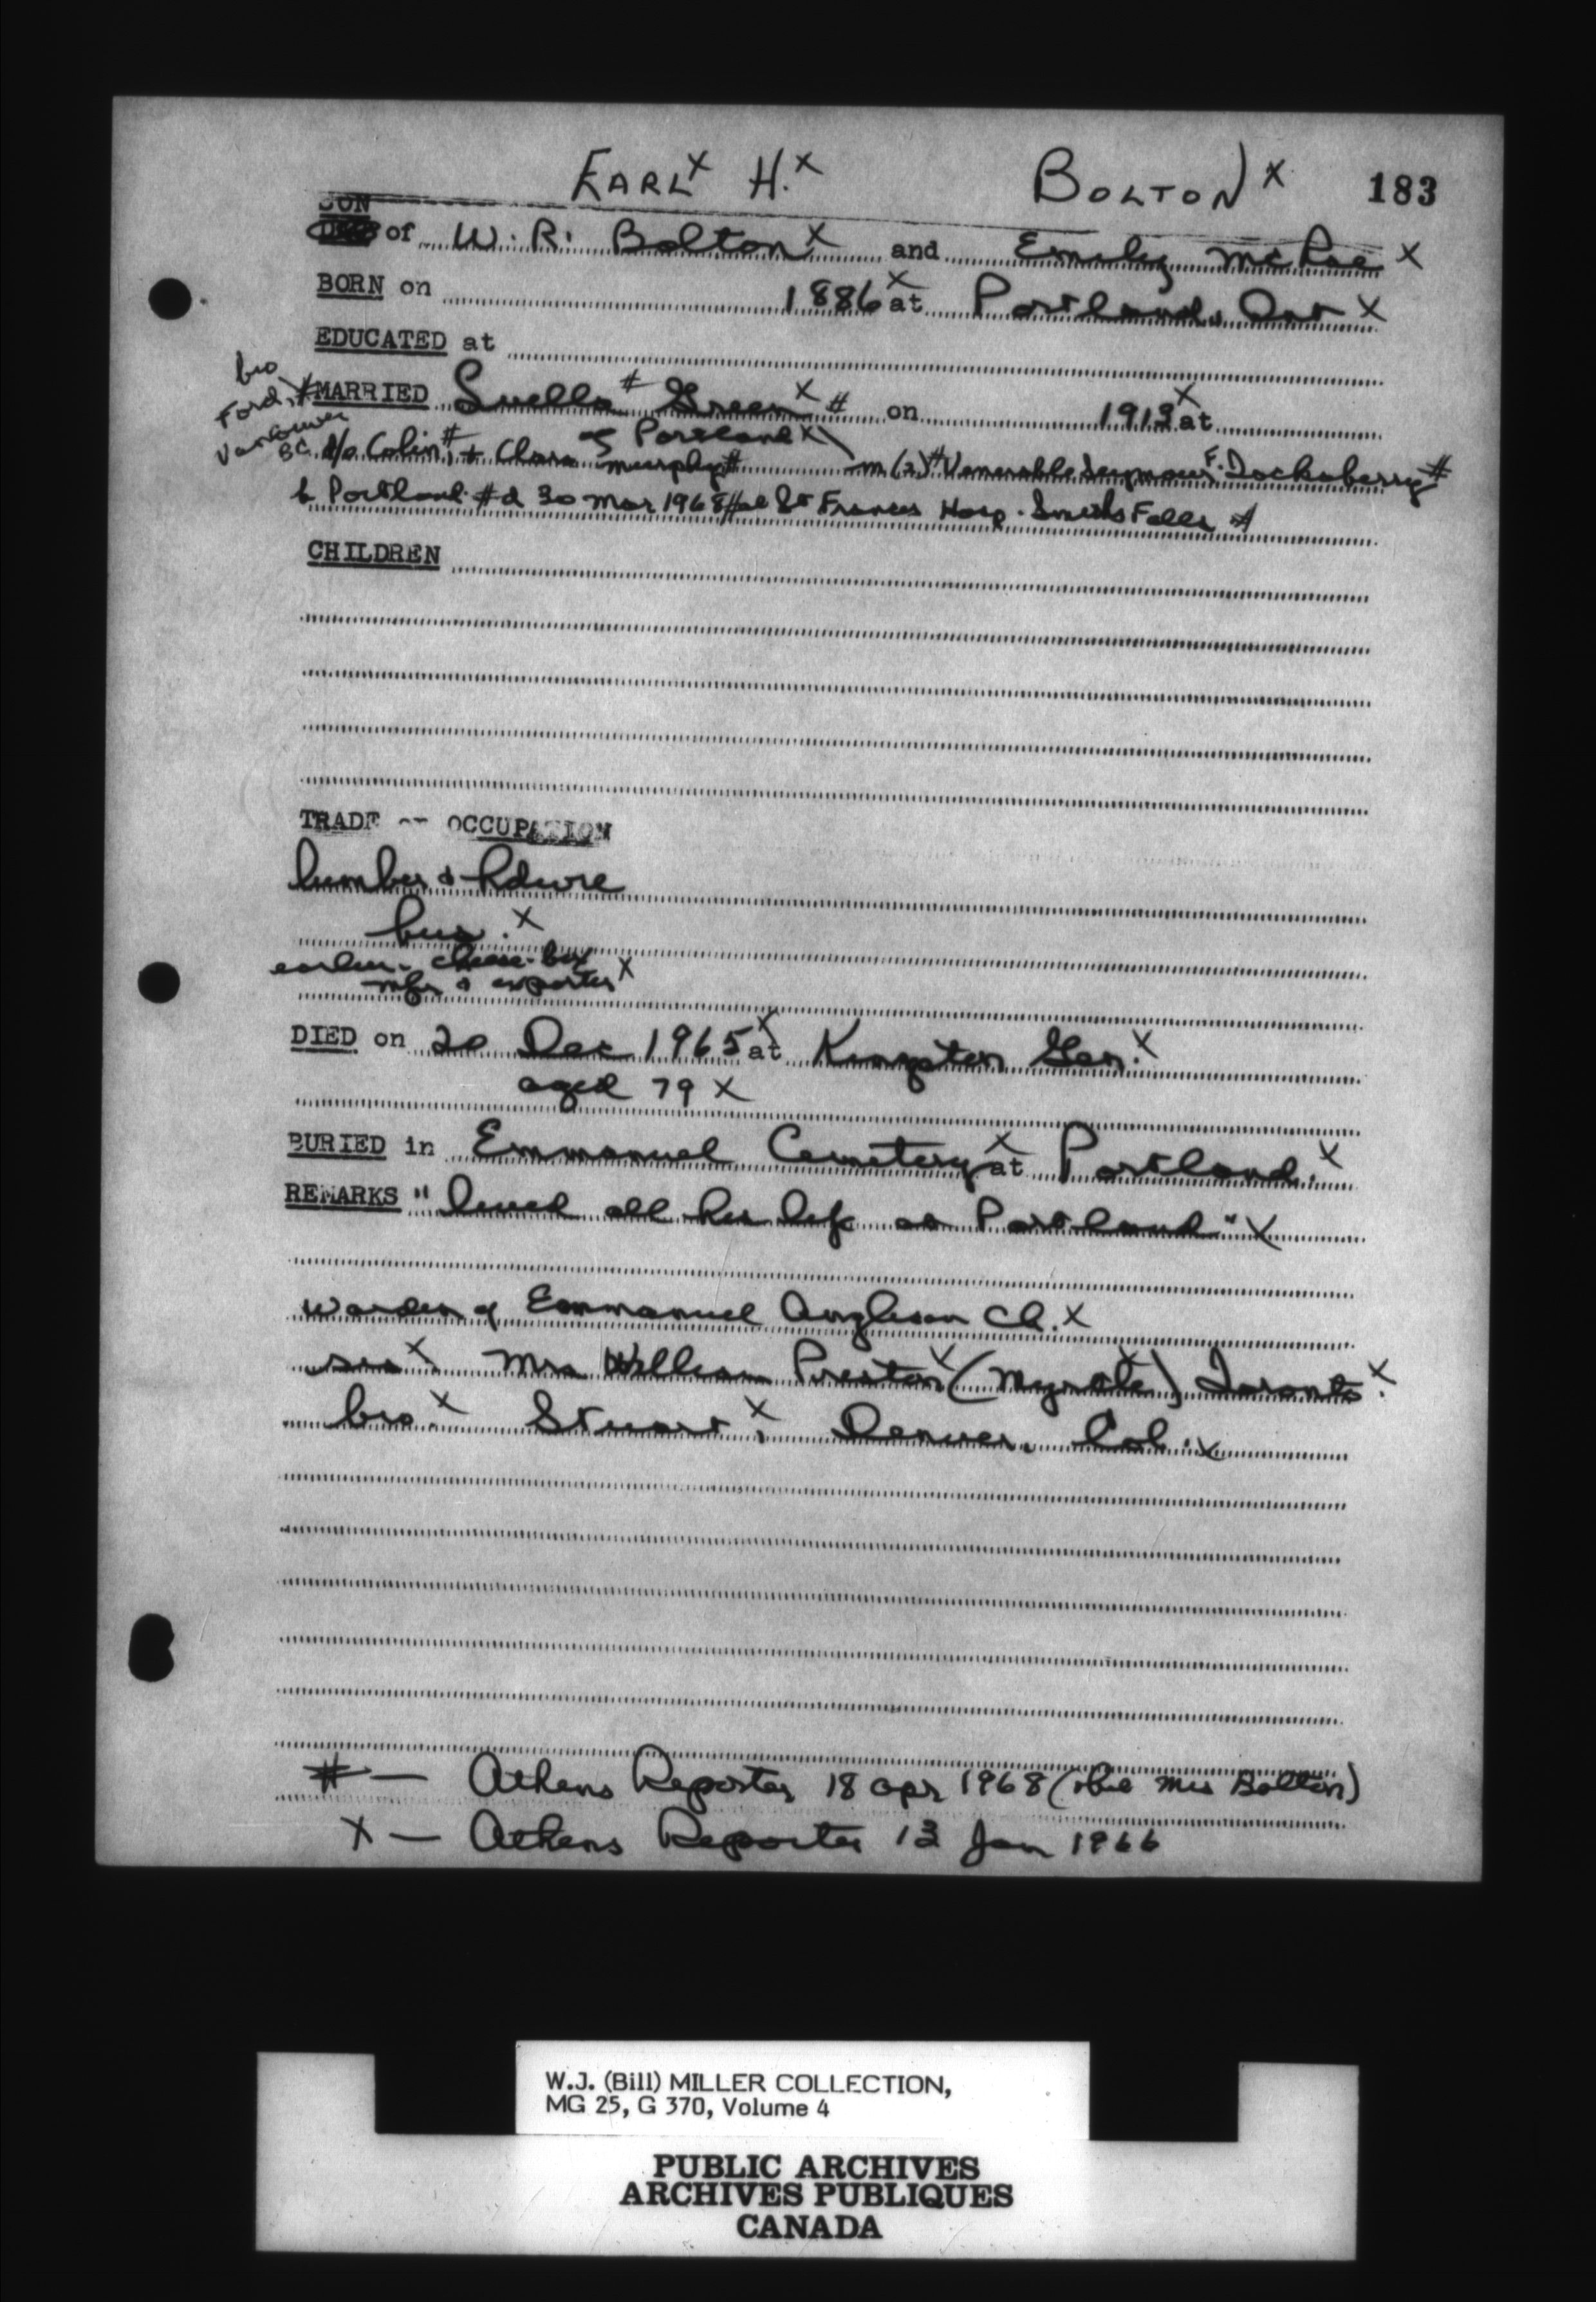 EARL x H. x BOLTON x 183
SON
of W. R. Bolton x and Emily McRae x
BORN on 1886 x at Portland, Ont x
EDUCATED at
bro
Ford, #
Vancouver
BC
MARRIED Luella # Green x # on 1912 x at
of Portland x
d/o Colin # + Clara Murphy # m (2) # Venerable Seymour F. Dockaberry #
b Portland # d 30 Mar 1968 # at St Francis Hosp. Smiths Falls #
CHILDREN
TRADE OCCUPATION
lumber & hdwre
bus. x
earlier - cheese-box
mfr & exporter x
DIED on 20 Dec 1965 x at Kingston Gen. x
aged 79 x
BURIED in Emmanuel Cemetery x at Portland. x
REMARKS "lived all his life at Portland" x
warden of Emmanuel Anglican Ch. x
sis x. Mrs William Preston x (Myrtle) Toronto. x
bro. x Stuart x, Denver, Col. x
# — Athens Reporter 18 Apr 1968 (obit Mrs Bolton)
x — Athens Reporter 13 Jan 1966
W.J. (Bill) MILLER COLLECTION,
MG 25, G 370, Volume 4
PUBLIC ARCHIVES
ARCHIVES PUBLIQUES
CANADA